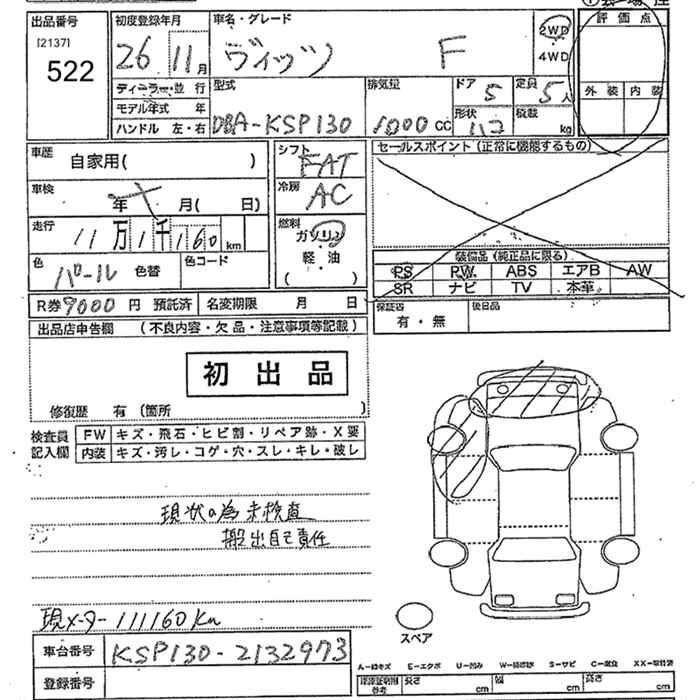 出品番号
[2137]
522
初度登録年月
26 11月
車名・グレード
ヴィッツ F
2WD
4WD
評価点
外装 内装
ディーラー・並行
モデル年式 年
ハンドル 左・右
型式
DBA-KSP130
排気量
1000 CC
ドア 5
定員 5人
形状
積載 kg
車歴
自家用( )
車検
年 月( 日)
走行
11万1千160 km
色
パール 色替
色コード
シフト
FAT
冷房
AC
燃料
ガソリン
軽・油
( )
セールスポイント(正常に機能するもの)
装備品(純正品に限る)
PS PW ABS エアB AW
SR ナビ TV 本革
保証書
有・無
後日品
R券 9000 円 預託済
名変期限 月 日
出品店申告欄 (不良内容・欠品・注意事項等記載)
初出品
修復歴 有 (箇所 )
検査員
記入欄
FW キズ・飛石・ヒビ割・リペア跡・X要
内装 キズ・汚レ・コゲ・穴・スレ・キレ・破レ
現状の為未検査
搬出自己責任
現メーター 111160Km
スペア
車台番号
KSP130-2132973
登録番号
A-線キズ E-エクボ U-凹み S-サビ C-腐食
長さ cm
幅 cm
高さ cm